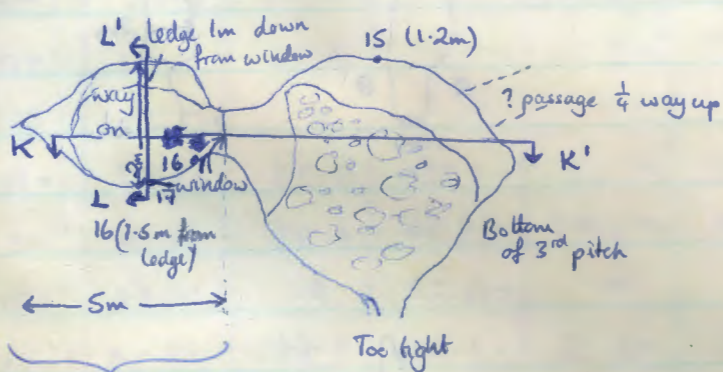 L'
ledge 1m down
from window
15 (1.2m)
? passage 1/4 way up
way
on
K
K'
16
window
L
17
16 (1.5m from
ledge)
Bottom
of 3rd pitch
5m
Too tight